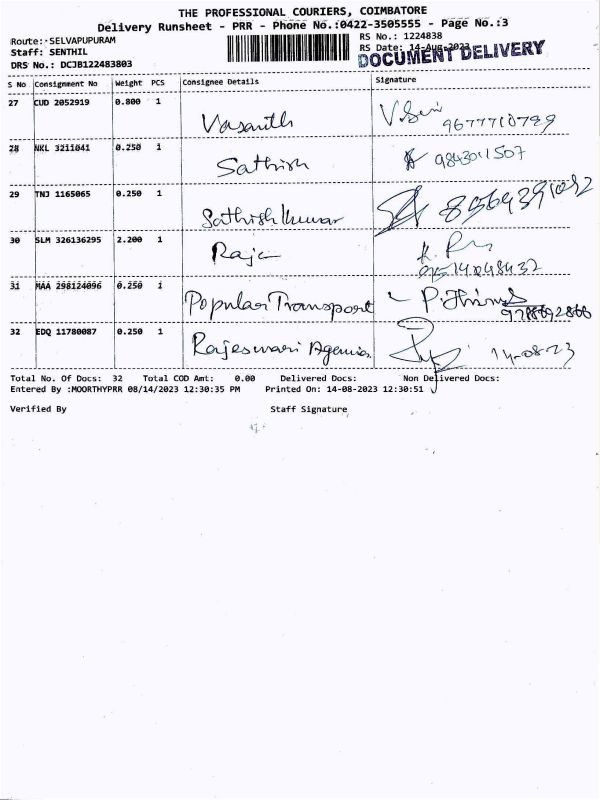 THE PROFESSIONAL COURIERS, COIMBATORE
Delivery Runsheet - PRR - Phone No.:0422-3505555 - Page No.:3
Route:-SELVAPUPURAM
RS No.: 1224838
Staff: SENTHIL
RS Date: 14-Aug-2023
DOCUMENT DELIVERY
DRS No.: DCJB122483803
S No Consignment No Weight PCS Consignee Details Signature
27 CUD 2052919 0.800 1 Vasanth 9677710799
28 NKL 3211041 0.250 1 Sathish 9843011507
29 TNJ 1165065 0.250 1 Sathishkumar
30 SLM 326136295 2.200 1 Raja
31 MAA 298124096 0.250 1 Popular Transport
32 EDQ 11780087 0.250 1 Rajeswari 14-08-23
Total No. Of Docs: 32 Total COD Amt: 0.00 Delivered Docs: Non Delivered Docs:
Entered By :MOORTHYPRR 08/14/2023 12:30:35 PM Printed On: 14-08-2023 12:30:51
Verified By Staff Signature